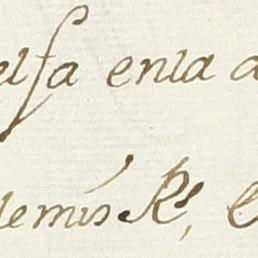 elsa enla a
demis Rs, e